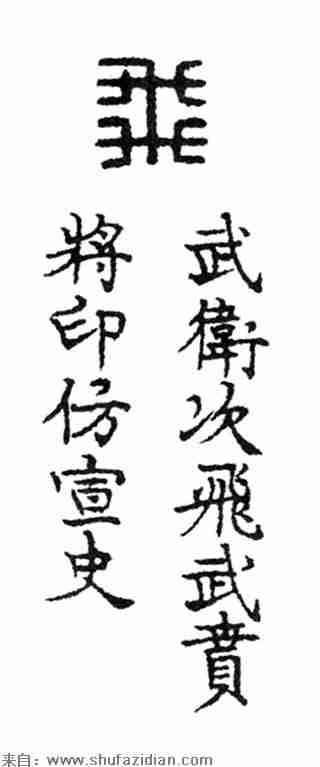 飛
武衛次飛武賁
將印仿宣史
来自：www.shufazidian.com